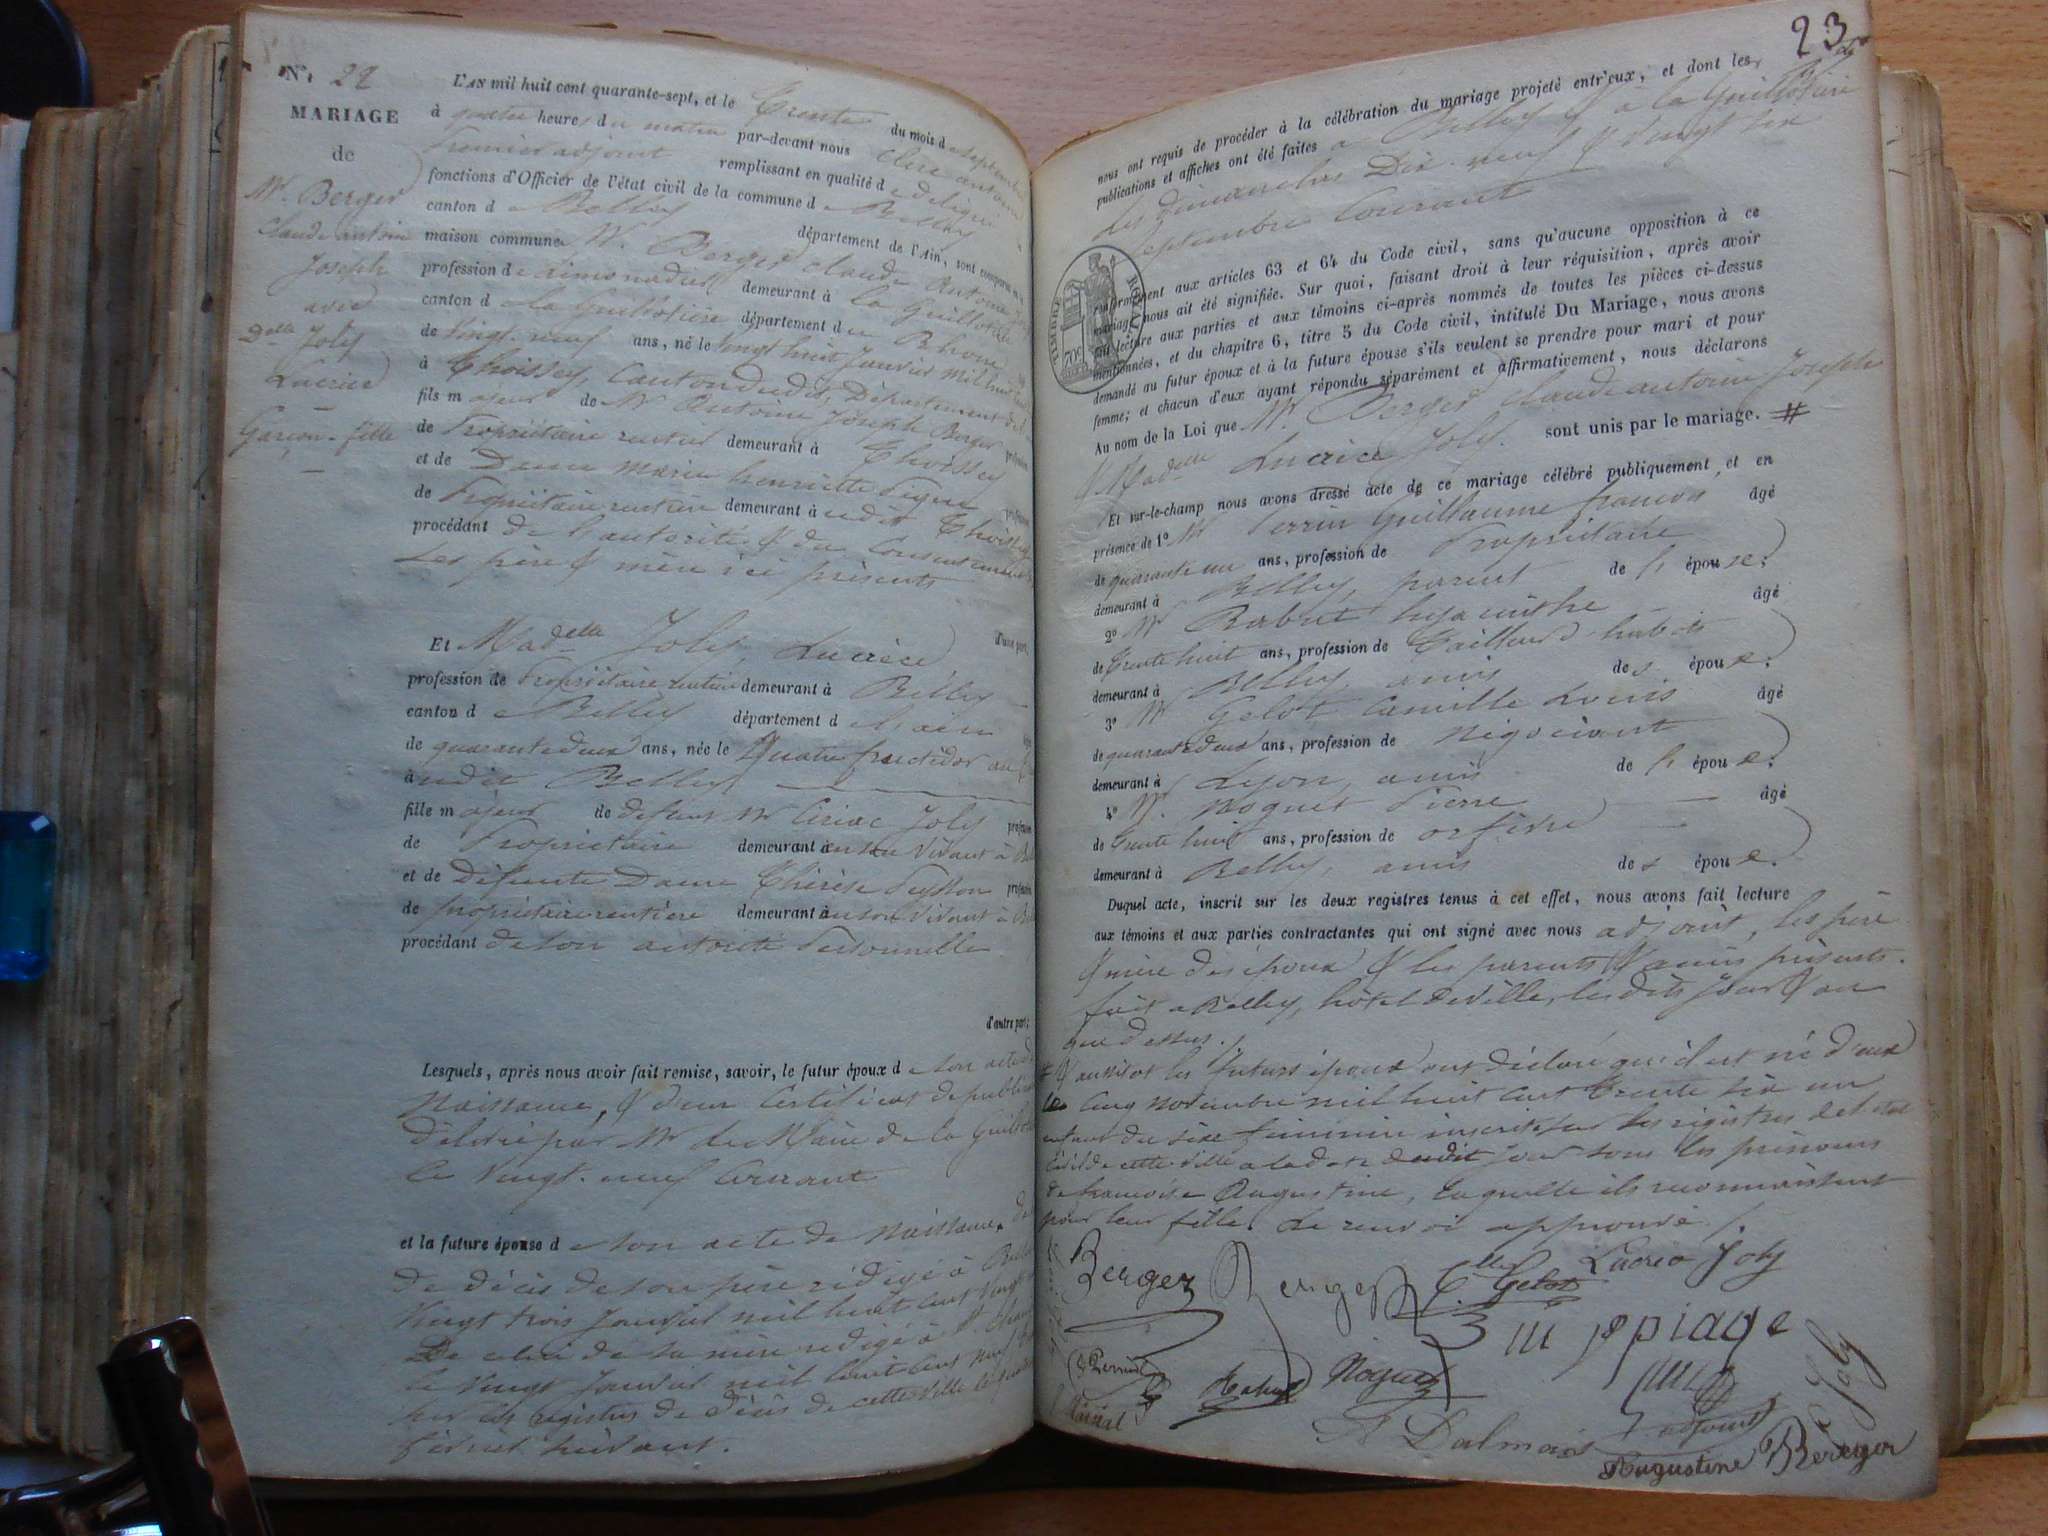 N.° 22
MARIAGE
de
Mr. Berger
Claude antoine
Joseph
avec
Delle Joly
Lucrèce
Garçon - fille
L'AN mil huit cent quarante-sept, et le Trente du mois de septembre
à quatre heures du matin par-devant nous
Premier adjoint remplissant en qualité de délégué
fonctions d'Officier de l'état civil de la commune de Belley
canton de Belley département de l'Ain, sont comparus en la
maison commune, Mr. Berger Claude Antoine
profession de Limonadier demeurant à la Guillotière
canton de la Guillotière département du Rhône
de vingt-neuf ans, né le vingt huit Janvier mil huit
à Thoissey, Canton dudit, Département de l'
fils majeur de Mr Antoine Joseph Berger profession
de Propriétaire rentier demeurant à Thoissey
et de Dame marie henriette profession
de Propriétaire rentière demeurant à udit Thoissey
procédant de l'autorité & du Consentement de
ses père & mère ici présents
d'une part,
Et Madelle Joly, Lucrèce
profession de Propriétaire rentière demeurant à Belley
canton de Belley département de l'ain
de quarante deux ans, née le Quatre fructidor an
à udit Belley,
fille majeure de défunt Mr Joly profession
de Propriétaire demeurant à en son vivant à
et de Défunte Dame Thérèse Peysson profession
de propriétaire rentière demeurant à en son vivant à
procédant de son autorité Personnelle
d'autre part;
Lesquels, après nous avoir fait remise, savoir, le futur époux de son acte de
Naissance, & d'un Certificat de publication
délivré par Mr le Maire de la Guillotière
le vingt-neuf Courant
et la future épouse de son acte de Naissance, de
de décès de son père rédigé à
vingt trois Janvier mil huit cent vingt
De celui de sa mère rédigé à
le vingt Janvier mil huit cent neuf
sur les registres de décès de cette ville le quatre
février suivant.
23
nous ont requis de procéder à la célébration du mariage projeté entr'eux, et dont les
publications et affiches ont été faites à Belley & à la Guillotière
les dimanches Dix-neuf & vingt six
septembre Courant
TIMBRE ROYAL
70c
conformément aux articles 63 et 64 du Code civil, sans qu'aucune opposition à ce
mariage nous ait été signifiée. Sur quoi, faisant droit à leur réquisition, après avoir
fait lecture aux parties et aux témoins ci-après nommés de toutes les pièces ci-dessus
mentionnées, et du chapitre 6, titre 5 du Code civil, intitulé Du Mariage, nous avons
demandé au futur époux et à la future épouse s'ils veulent se prendre pour mari et pour
femme; et chacun d'eux ayant répondu séparément et affirmativement, nous déclarons
Au nom de la Loi que Mr. Berger Claude antoine Joseph
& Madelle Lucrèce Joly. sont unis par le mariage. #
Et sur-le-champ nous avons dressé acte de ce mariage célébré publiquement, et en
présence de 1° Mr Perrin Guillaume françois âgé
de quarante un ans, profession de Propriétaire
demeurant à Belley, parent de l' épouse;
2° Mr Rabut hyacinthe âgé
de Trente huit ans, profession de Tailleur d'habits
demeurant à Belley, amis de s épou x;
3° Mr Gelot Camille Louis âgé
de quarante deux ans, profession de Négociant
demeurant à Lyon, amis de l' épou x;
4° Mr. Noguet Pierre âgé
de Trente huit ans, profession de orfèvre
demeurant à Belley, amis de s épou x.
Duquel acte, inscrit sur les deux registres tenus à cet effet, nous avons fait lecture
aux témoins et aux parties contractantes qui ont signé avec nous adjoint, les père
& mère des époux & les parents & amis présents.
fait à Belley, hôtel de ville, les dits jour & an
que dessus.
# & aussitôt les futurs époux ont déclaré qu'il est né d'eux
le cinq novembre mil huit cent trente six un
enfant du sexe féminin inscrit sur les registres de l'état
civil de cette ville à la date dudit jour sous les prénoms
de françoise Augustine, laquelle ils reconnaissent
pour leur fille. Le renvoi approuvé.
Berger Berger Clle Gelot Lucrèce Joly
Perrin Rabut Noguet
A Dalmais adjoint Joly
Augustine Berger